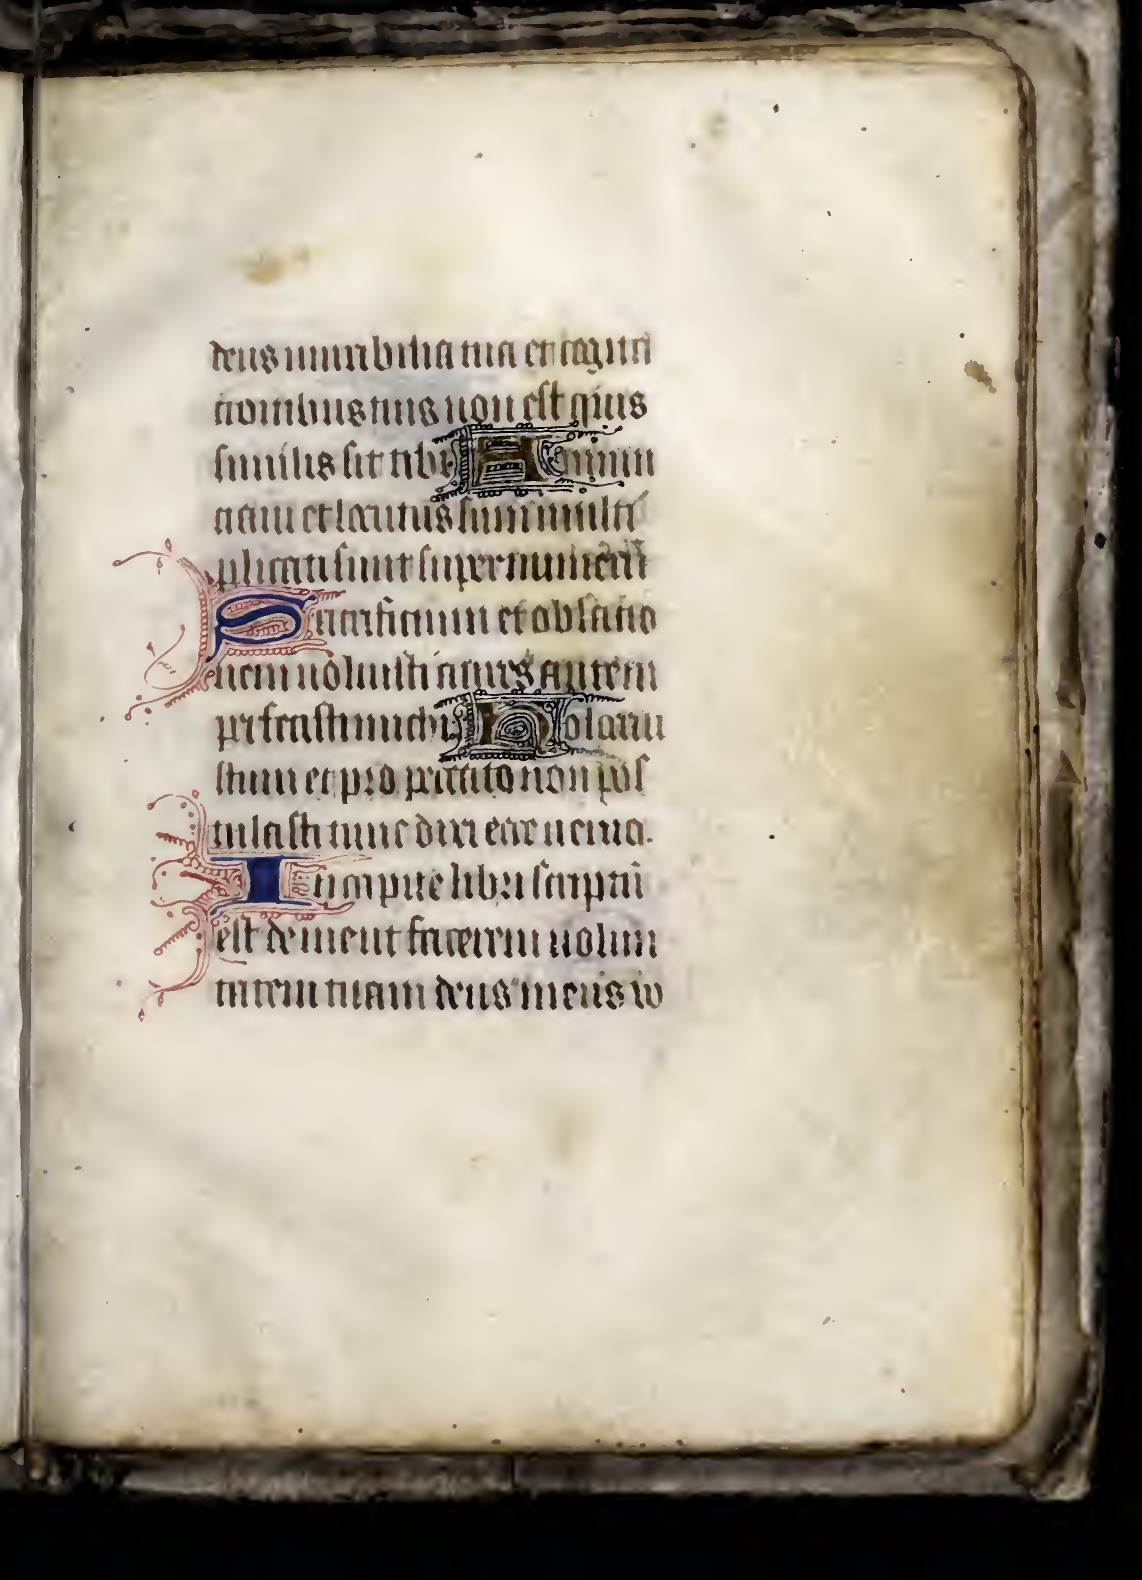 deus mirabilia tua et cogitati
cionibus tuis non est quis
similis sit tibi Annun
ciaui et locutus sum multi
plicati sunt super numerū
Sacrificium et oblatio
nem noluisti aures autem
perfecisti michi Holocau
stum et pro peccato non pos
tulasti tunc dixi ecce uenio.
In capite libri scriptū
est de me ut facerem uolun
tatem tuam deus meus uo